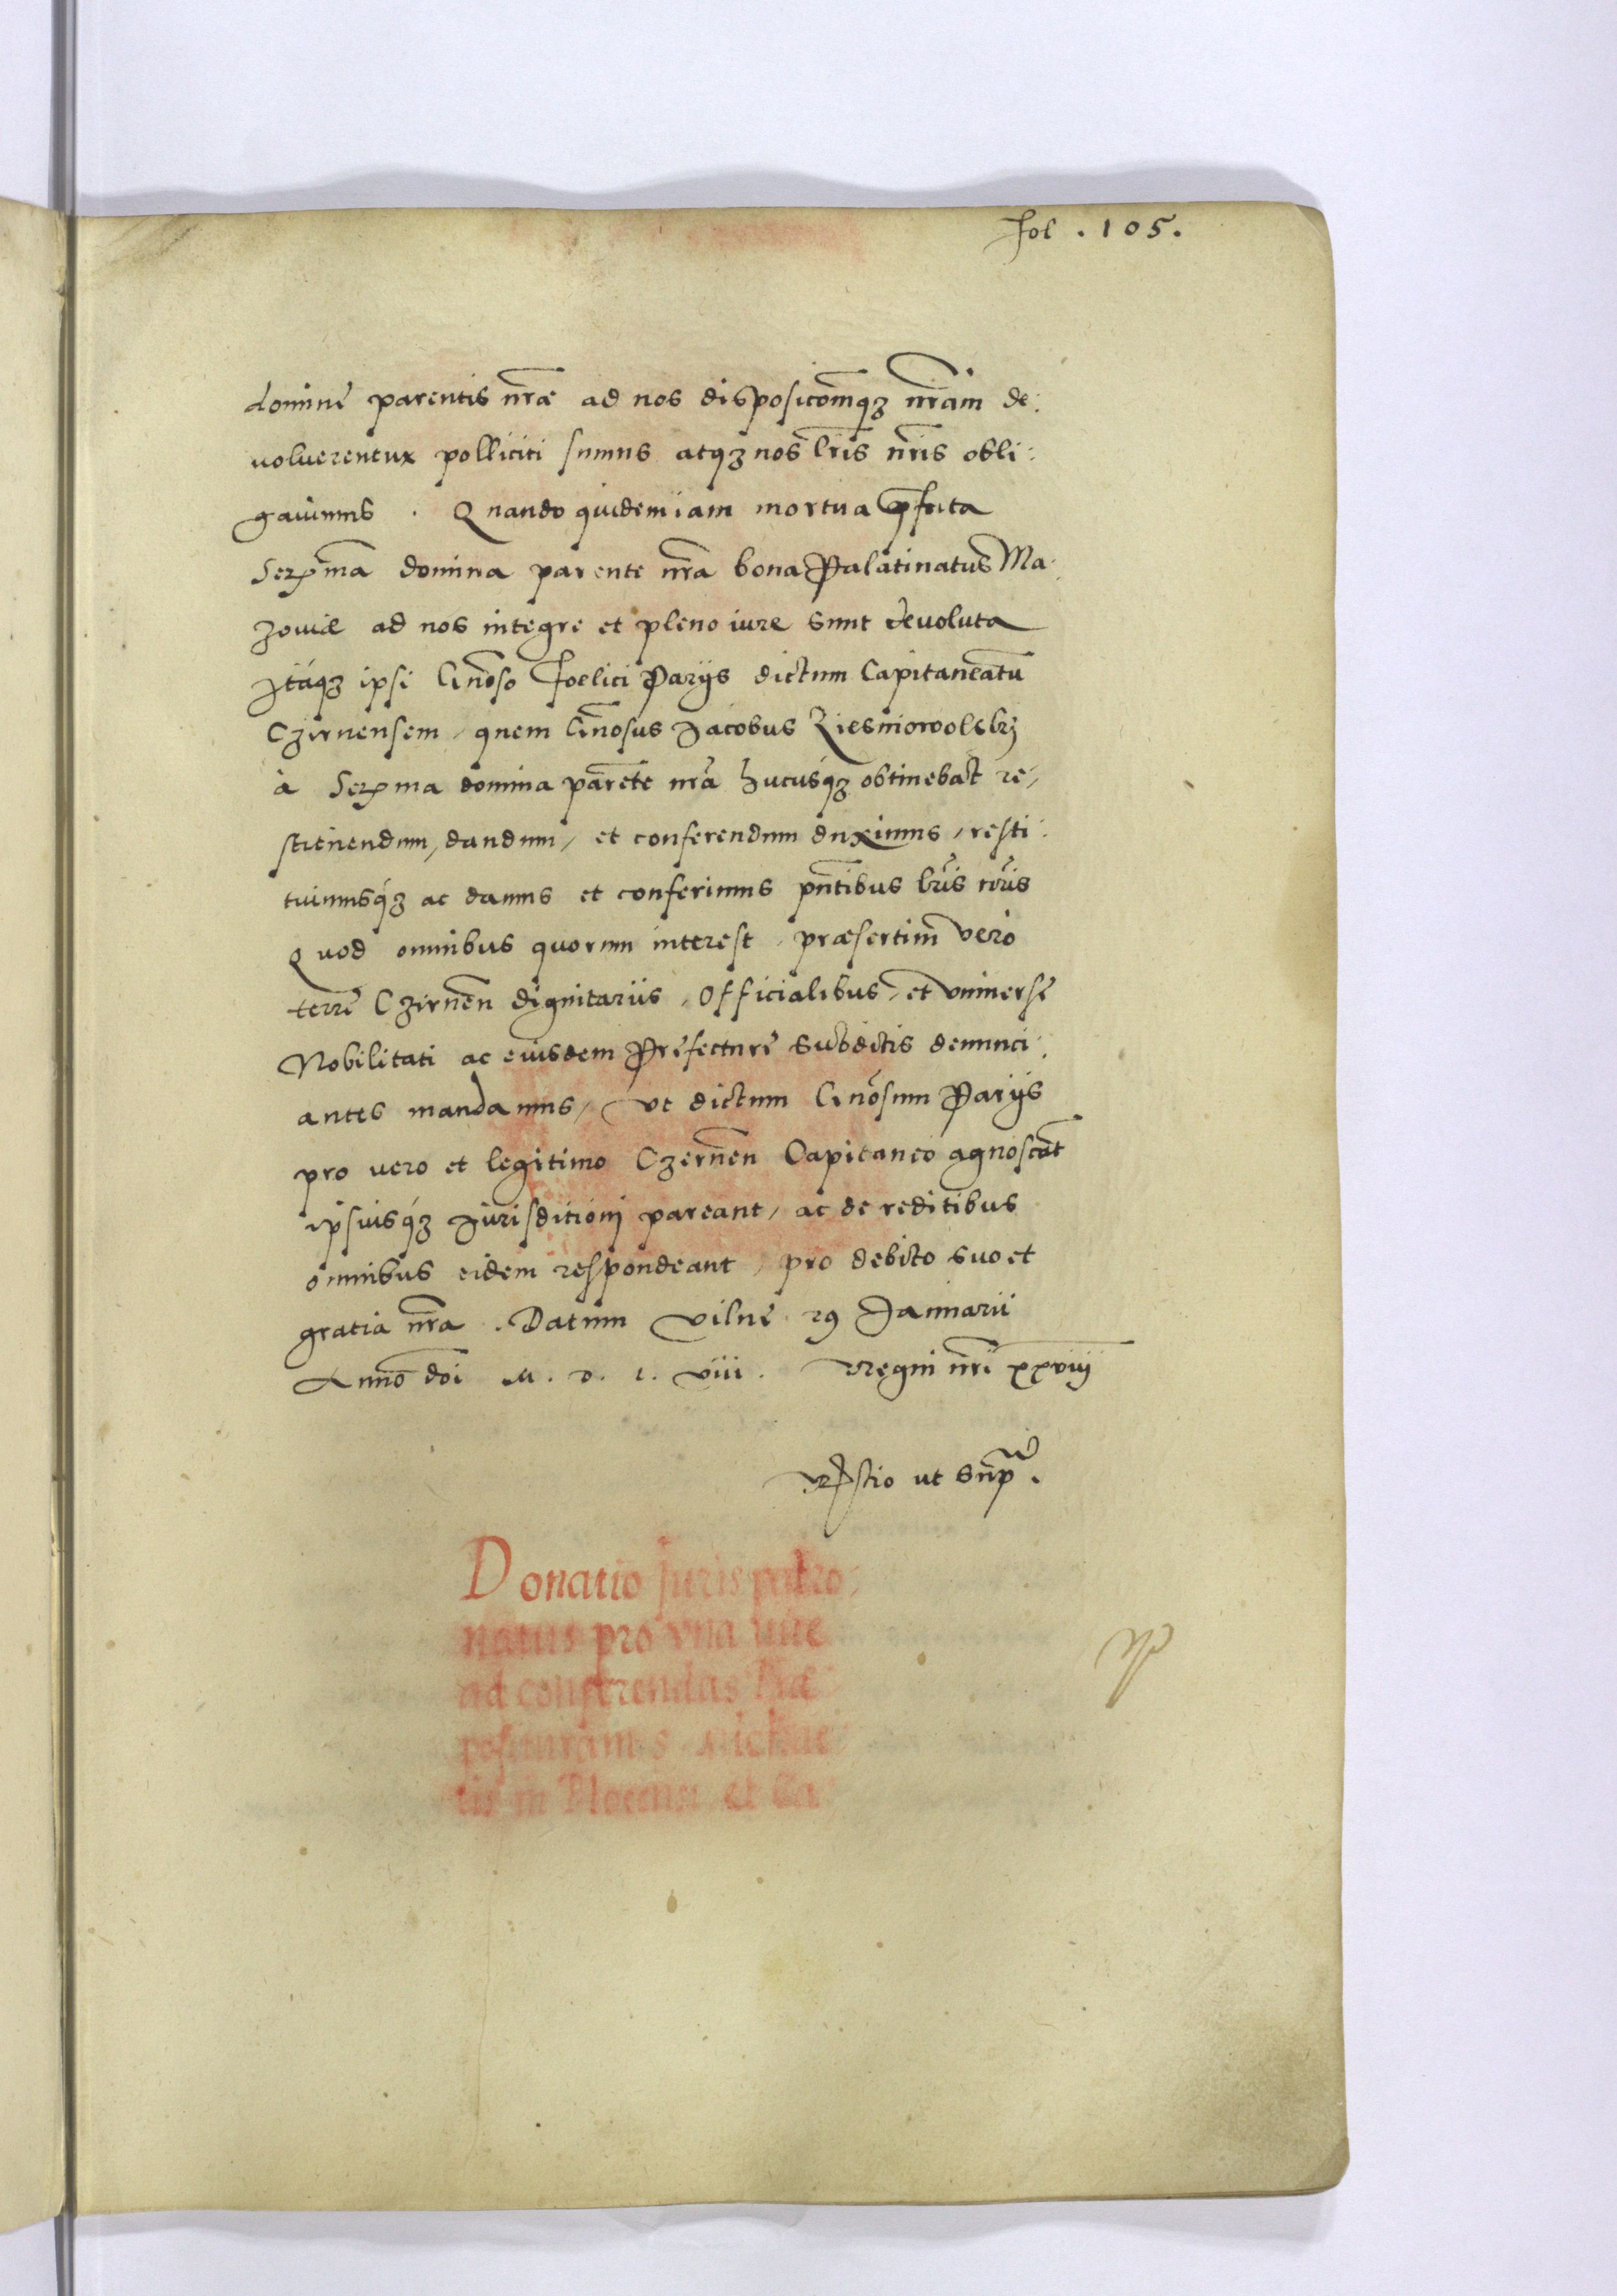 fol . 105 .
dominę parentis nr̃æ ad nos disposicõmq3 nr̃am de:
voluerentur polliciti sumus atq3 nos lr̃is nr̃is obli:
gauimus . Quando quidem iam mortua
Ser. ma domina parente nr̃a bona Palatinatus Ma:
zouiæ ad nos integre et pleno iure sunt devoluta
Itaq3 ipsi Gñoso Foelici Parijs dictum Capitaneatũ
Czirnensem, quem Gñosus Jacobus
à Ser. ma domina parẽte nr̃a hucusq3 obtinebat re,
stituendum, dandum, et conferendum duximus, resti:
tuimusq3 ac damus et conferimus pñtibus lr̃is nr̃is
Quod omnibus quorum interest, præsertim vero
terrę Czirneñ dignitariis, Officialibus, et vniuersę
Nobilitati ac eiusdem Pręfecturę subditis denunci:
antes mandamus, vt dictum Gñosum Parijs
pro uero et legitimo Czerneñ Capitaneo agnoscãt
ipsiusq3 Jurisditioni pareant, ac de reditibus
omnibus eidem respondeant, pro debito suo et
gratia nr̃a . Datum Vilnę 29 Januarii
Anno dñi M . D . L . viii . Regni nr̃i xxviij
ut sup.
Donatio Juris patro,
natus pro vna vice
ad conferendas Præ
posituram S Michae
lis in Plocensi et Ca